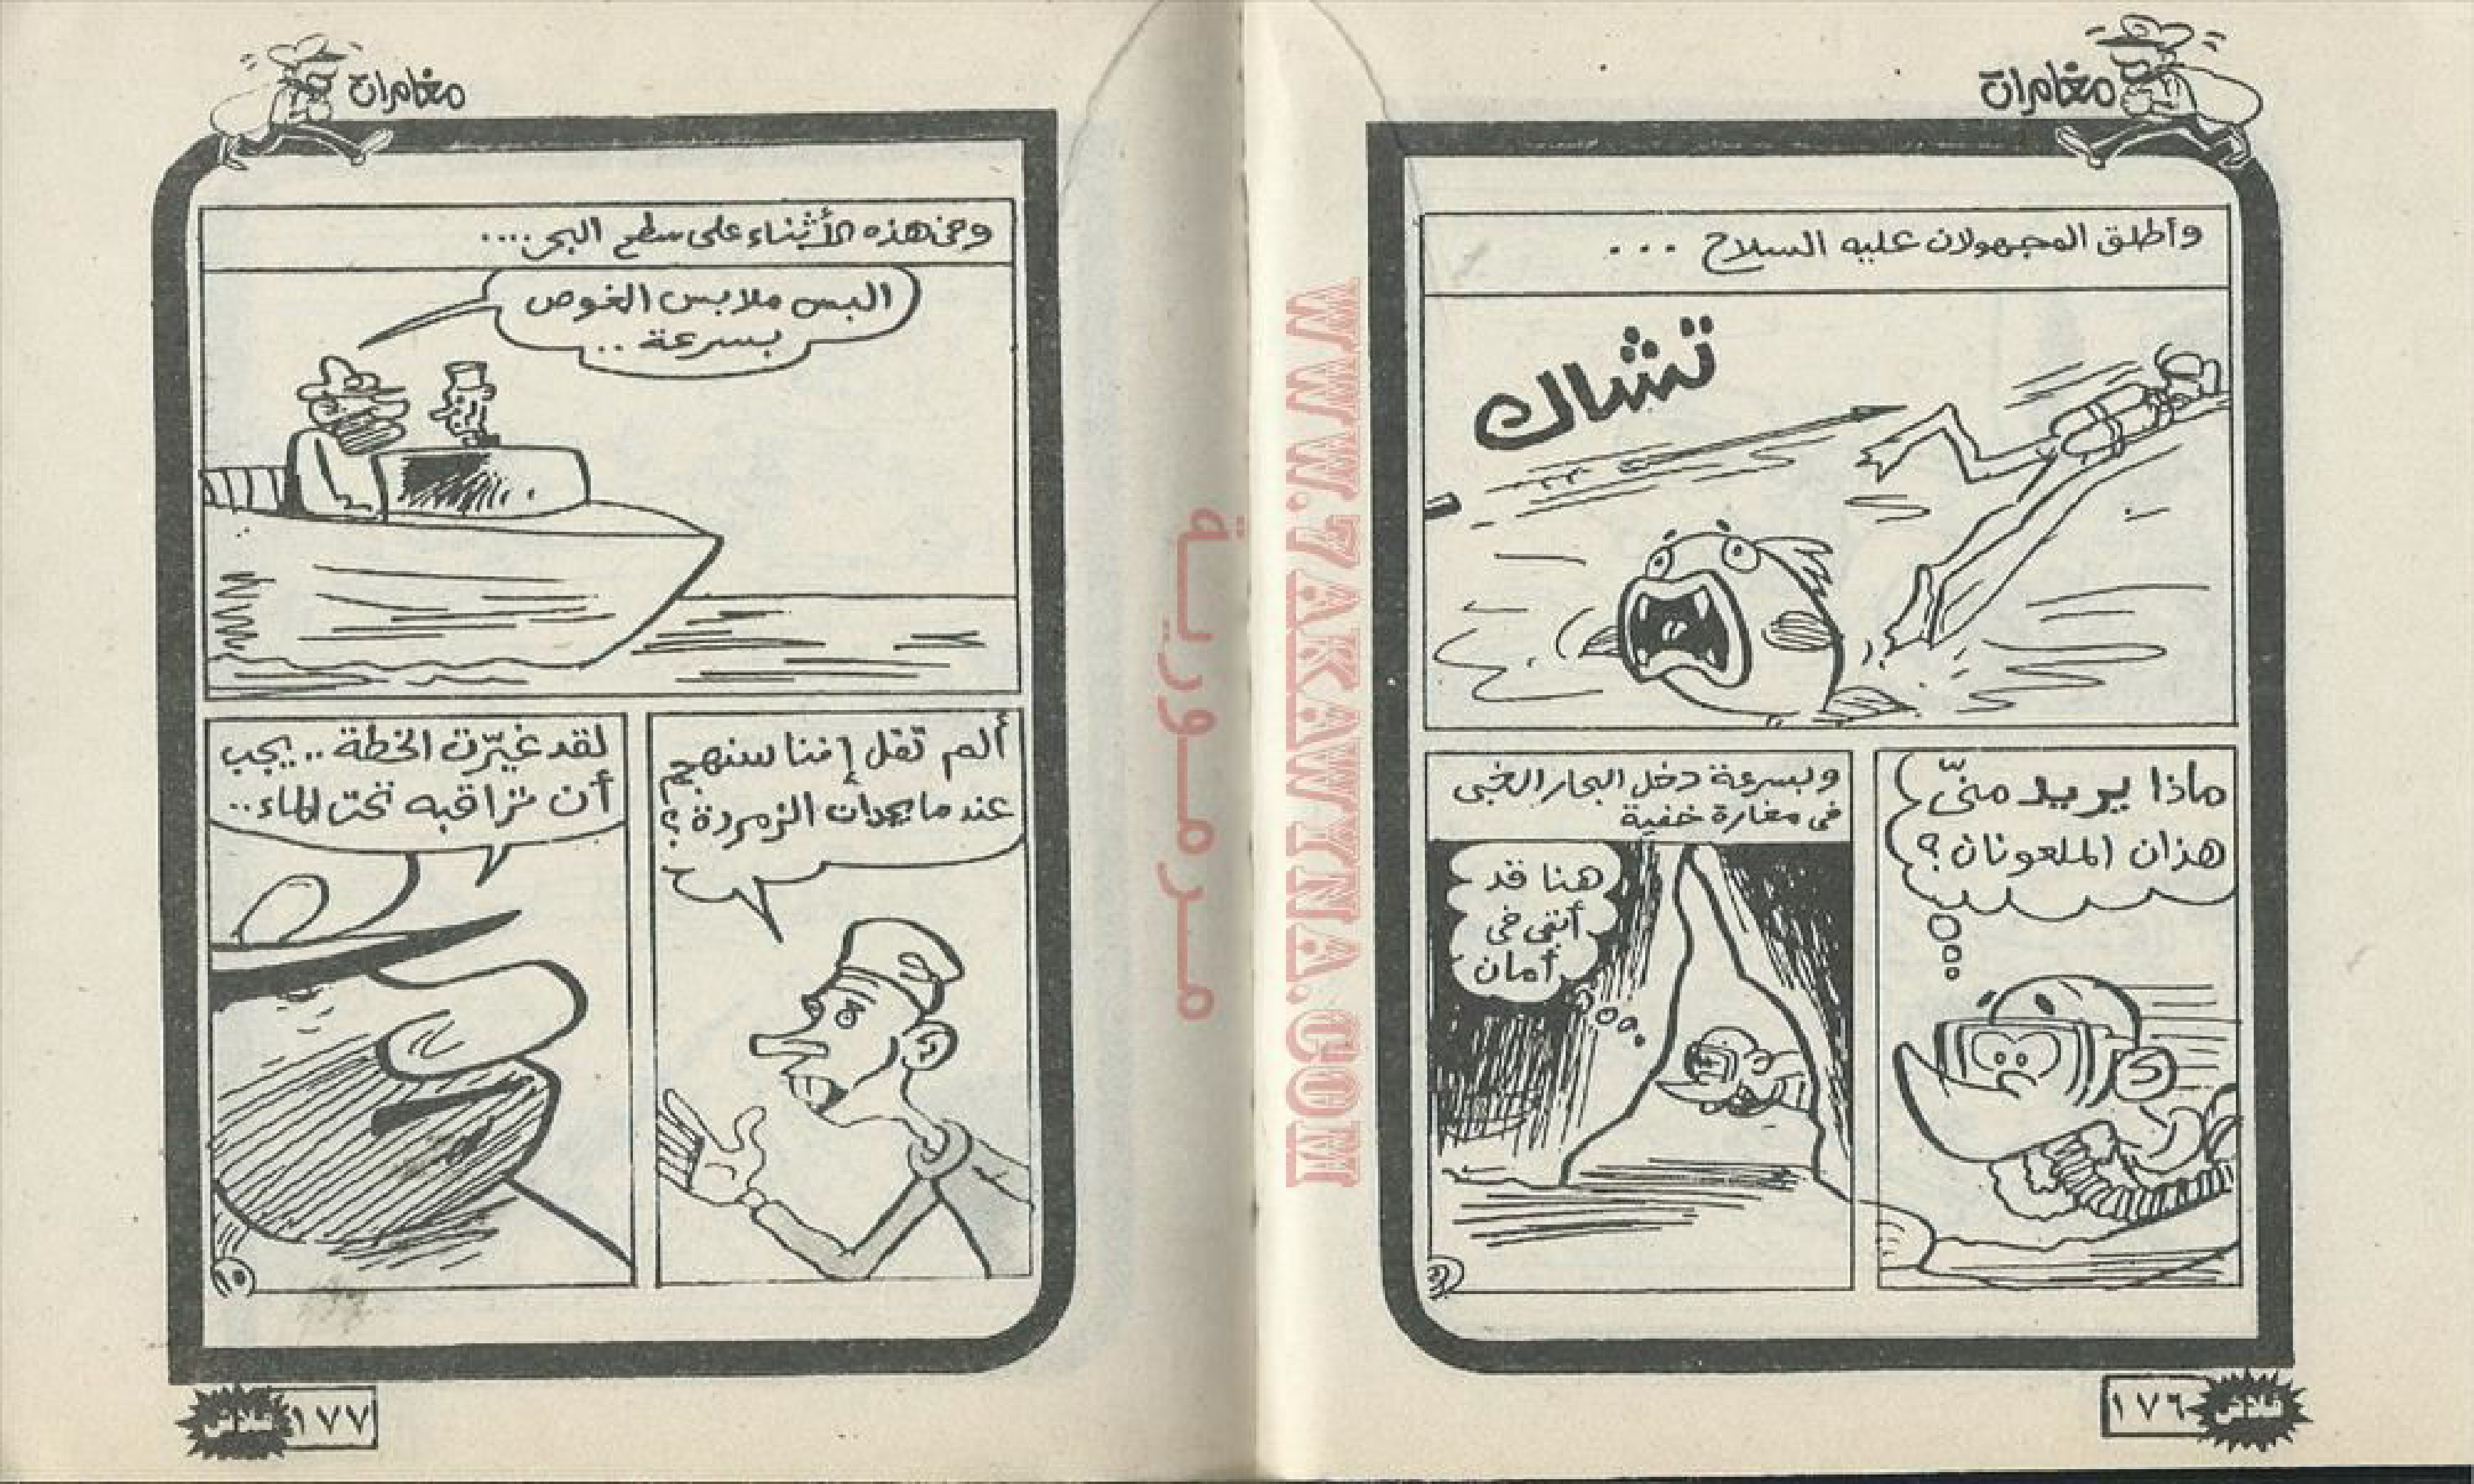 مغامرات
وأطلق المجهولان عليه السلاح ...
تشاك
ماذا يريد منّي
هذان الملعونان؟
وبسرعة دخل البحار الخفي
في مغارة خفية
هنا قد
أنني في
أمان
١٧٦
فلاش
WWW.7AKAWYNA.COM
مرمورية
مغامرات
وفي هذه الأثناء على سطح البحر....
البس ملابس الغوص
بسرعة ..
ألم تقل إننا سنهجم
عندما يجدان الزمردة؟
لقد غيّرت الخطة .. يجب
أن نراقبه تحت الماء..
١٥
١٧٧
فلاش